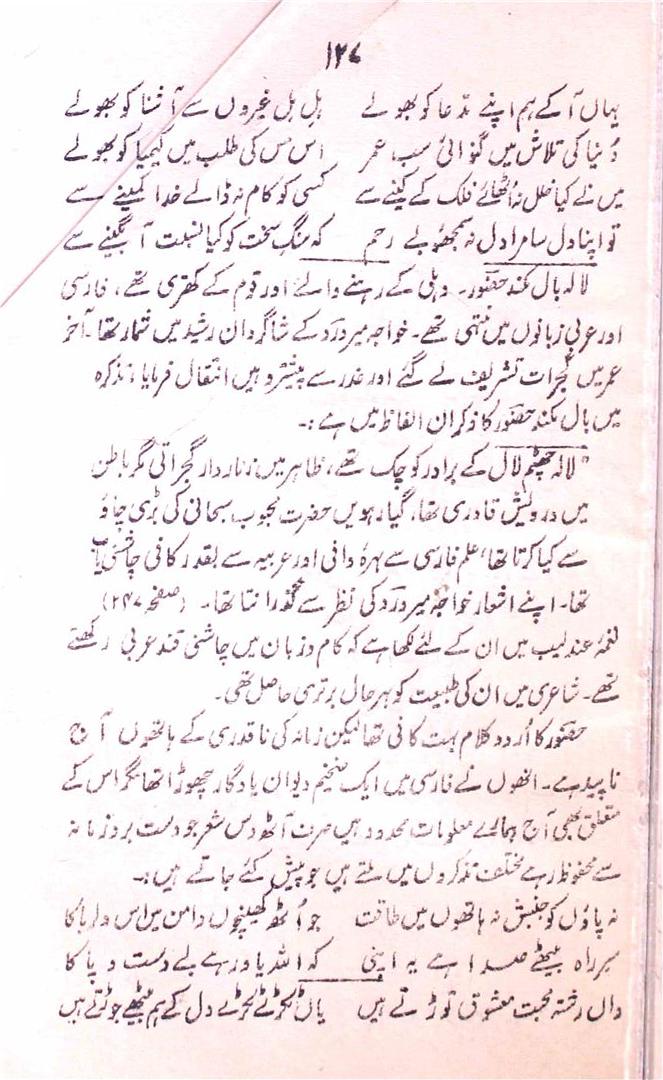 ۱۲۷
یہاں آکے ہم اپنے مدّعا کو بھولے مل مل غیروں سے آشنا کو بھولے
دُنیا کی تلاش میں گنوائی سب عمر اس مس کی طلب میں کیمیا کو بھولے
میں نے کیا خلل نہ اُٹھائے فلک کے کینے سے کسی کو کام نہ ڈالے خدا کمینے سے
تو اپنا دل سا مرا دل نہ سمجھو بے رحم کہ سنگِ سخت کو کیا نسبت آبگینے سے
لالہ بال مکند حضور۔ دہلی کے رہنے والے اور قوم کے کھتری تھے، فارسی
اور عربی زبانوں میں منتہی تھے۔ خواجہ میر درد کے شاگردانِ رشید میں شمار تھا۔ آخر
عمر میں گجرات تشریف لے گئے اور غدر سے پیشتر وہیں انتقال فرمایا، تذکرہ
میں بال مکند حضور کا ذکر ان الفاظ میں ہے :۔
"لالہ چھٹم لال کے برادر کوچک تھے، ظاہر میں زنار دار گجراتی مگر باطن
میں درویش قادری تھا، گیارہویں حضرت محبوب سبحانی کی بڑی چاؤ
سے کیا کرتا تھا، علم فارسی سے بہرہ دانی اور عربیہ سے بقدر کافی چاشنی یاب
تھا۔ اپنے اشعار خواجہ میر درد کی نظر سے گذرانتا تھا۔ (صفحہ ۲۴۷)
نغمۂ عندلیب میں ان کے لئے لکھا ہے کہ کام و زبان میں چاشنی قند عربی رکھتے
تھے۔ شاعری میں ان کی طبیعت کو بہر حال برتری حاصل تھی۔
حضور کا اُردو کلام بہت کافی تھا لیکن زمانہ کی ناقدری کے ہاتھوں آج
ناپید ہے۔ انھوں نے فارسی میں ایک ضخیم دیوان یادگار چھوڑا تھا مگر اس کے
متعلق بھی آج ہمارے معلومات محدود ہیں صرف آٹھ دس شعر جو دست بردِ زمانہ
سے محفوظ رہے مختلف تذکروں میں ملتے ہیں جو پیش کئے جاتے ہیں :۔
نہ پاؤں کو جنبش نہ ہاتھوں میں طاقت جو اُٹھ کھینچوں دامن میں اس دلربا کا
سرِ راہ بیٹھے صدا ہے یہ اپنی کہ اللہ یاور ہے بے دست و پا کا
واں رشتۂ محبت معشوق توڑتے ہیں یاں ٹکڑے ٹکڑے دل کے ہم بیٹھے جوڑتے ہیں